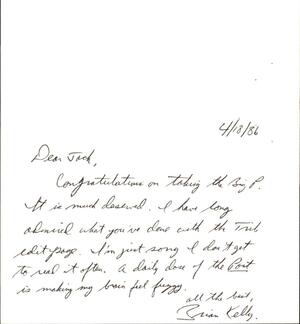 4/18/86
Dear Jack,
Congratulations on taking the Big P.
It is much deserved. I have long
admired what you've done with the Trib
edit page. I'm just sorry I don't get
to read it often. A daily dose of the Post
is making my brain feel fuzzy.
All the best,
Brian Kelly